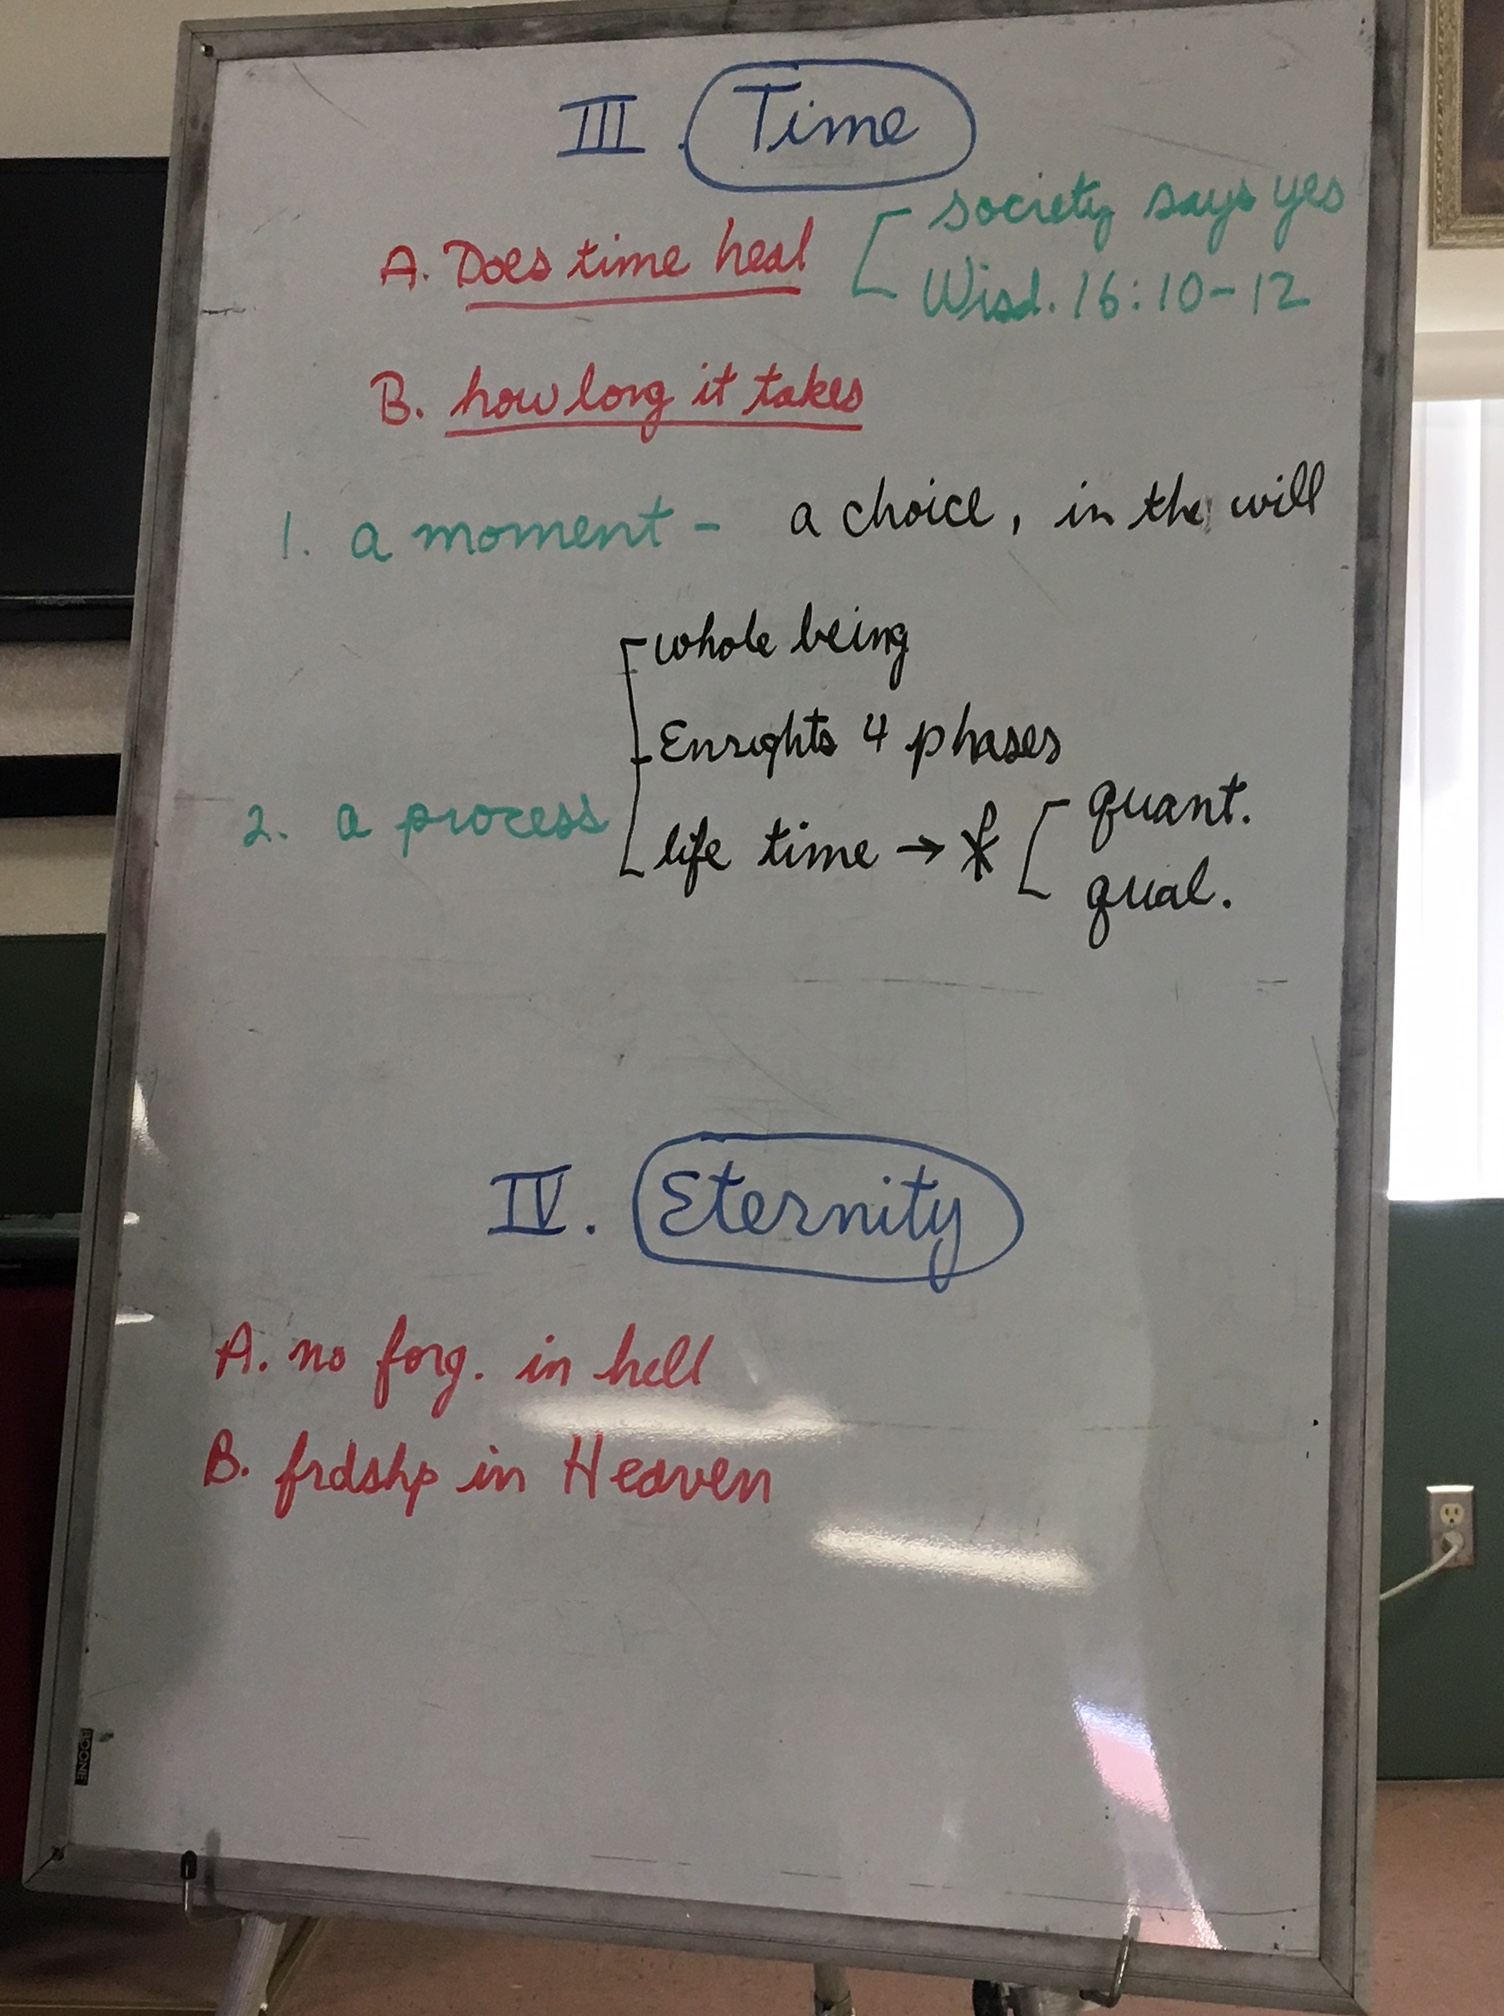 III. Time
A. Does time heal
society says yes
Wisd. 16:10-12
B. how long it takes
1. a moment - a choice, in the will
2. a process
whole being
Enrights 4 phases
life time →
quant.
qual.
IV. Eternity
A. no forg. in hell
B. frdshp in Heaven